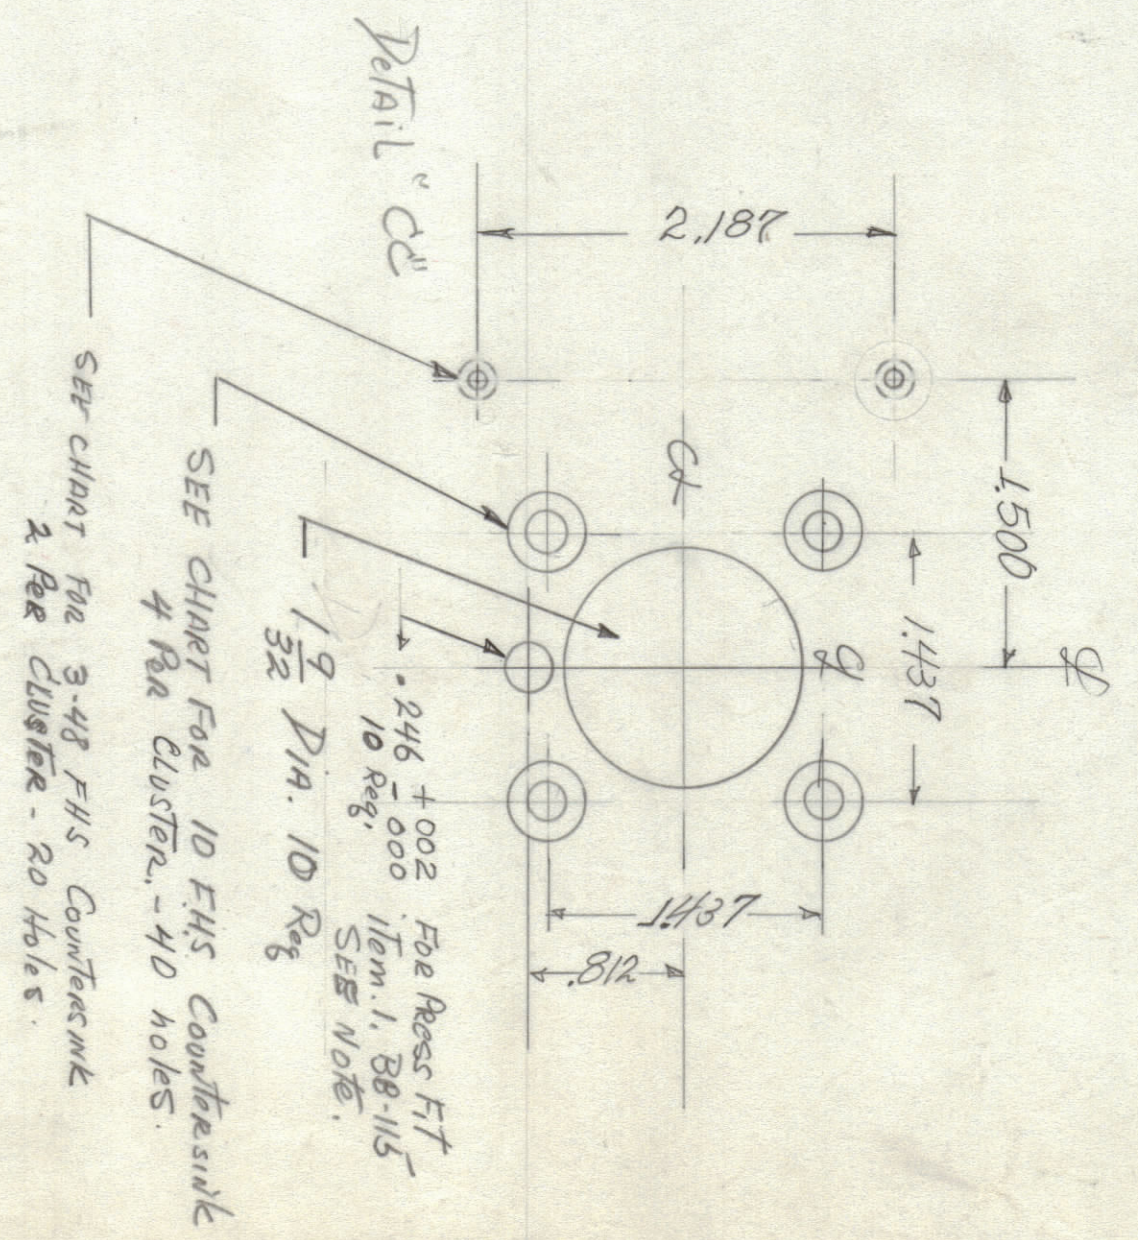 DETAIL "CC"
2.187
1.500
1.437
1.437
.812
℄
℄
℄
.246 +002
-000 FOR PRESS FIT
10 Req. ITEM.1. BB-115
SEE NOTE.
1 9/32 DIA. 10 Req
SEE CHART FOR 10 F.H.S. COUNTERSINK
4 PER CLUSTER. - 40 holes.
SEE CHART FOR 3-48 FHS COUNTERSINK
2 PER CLUSTER - 20 Holes.